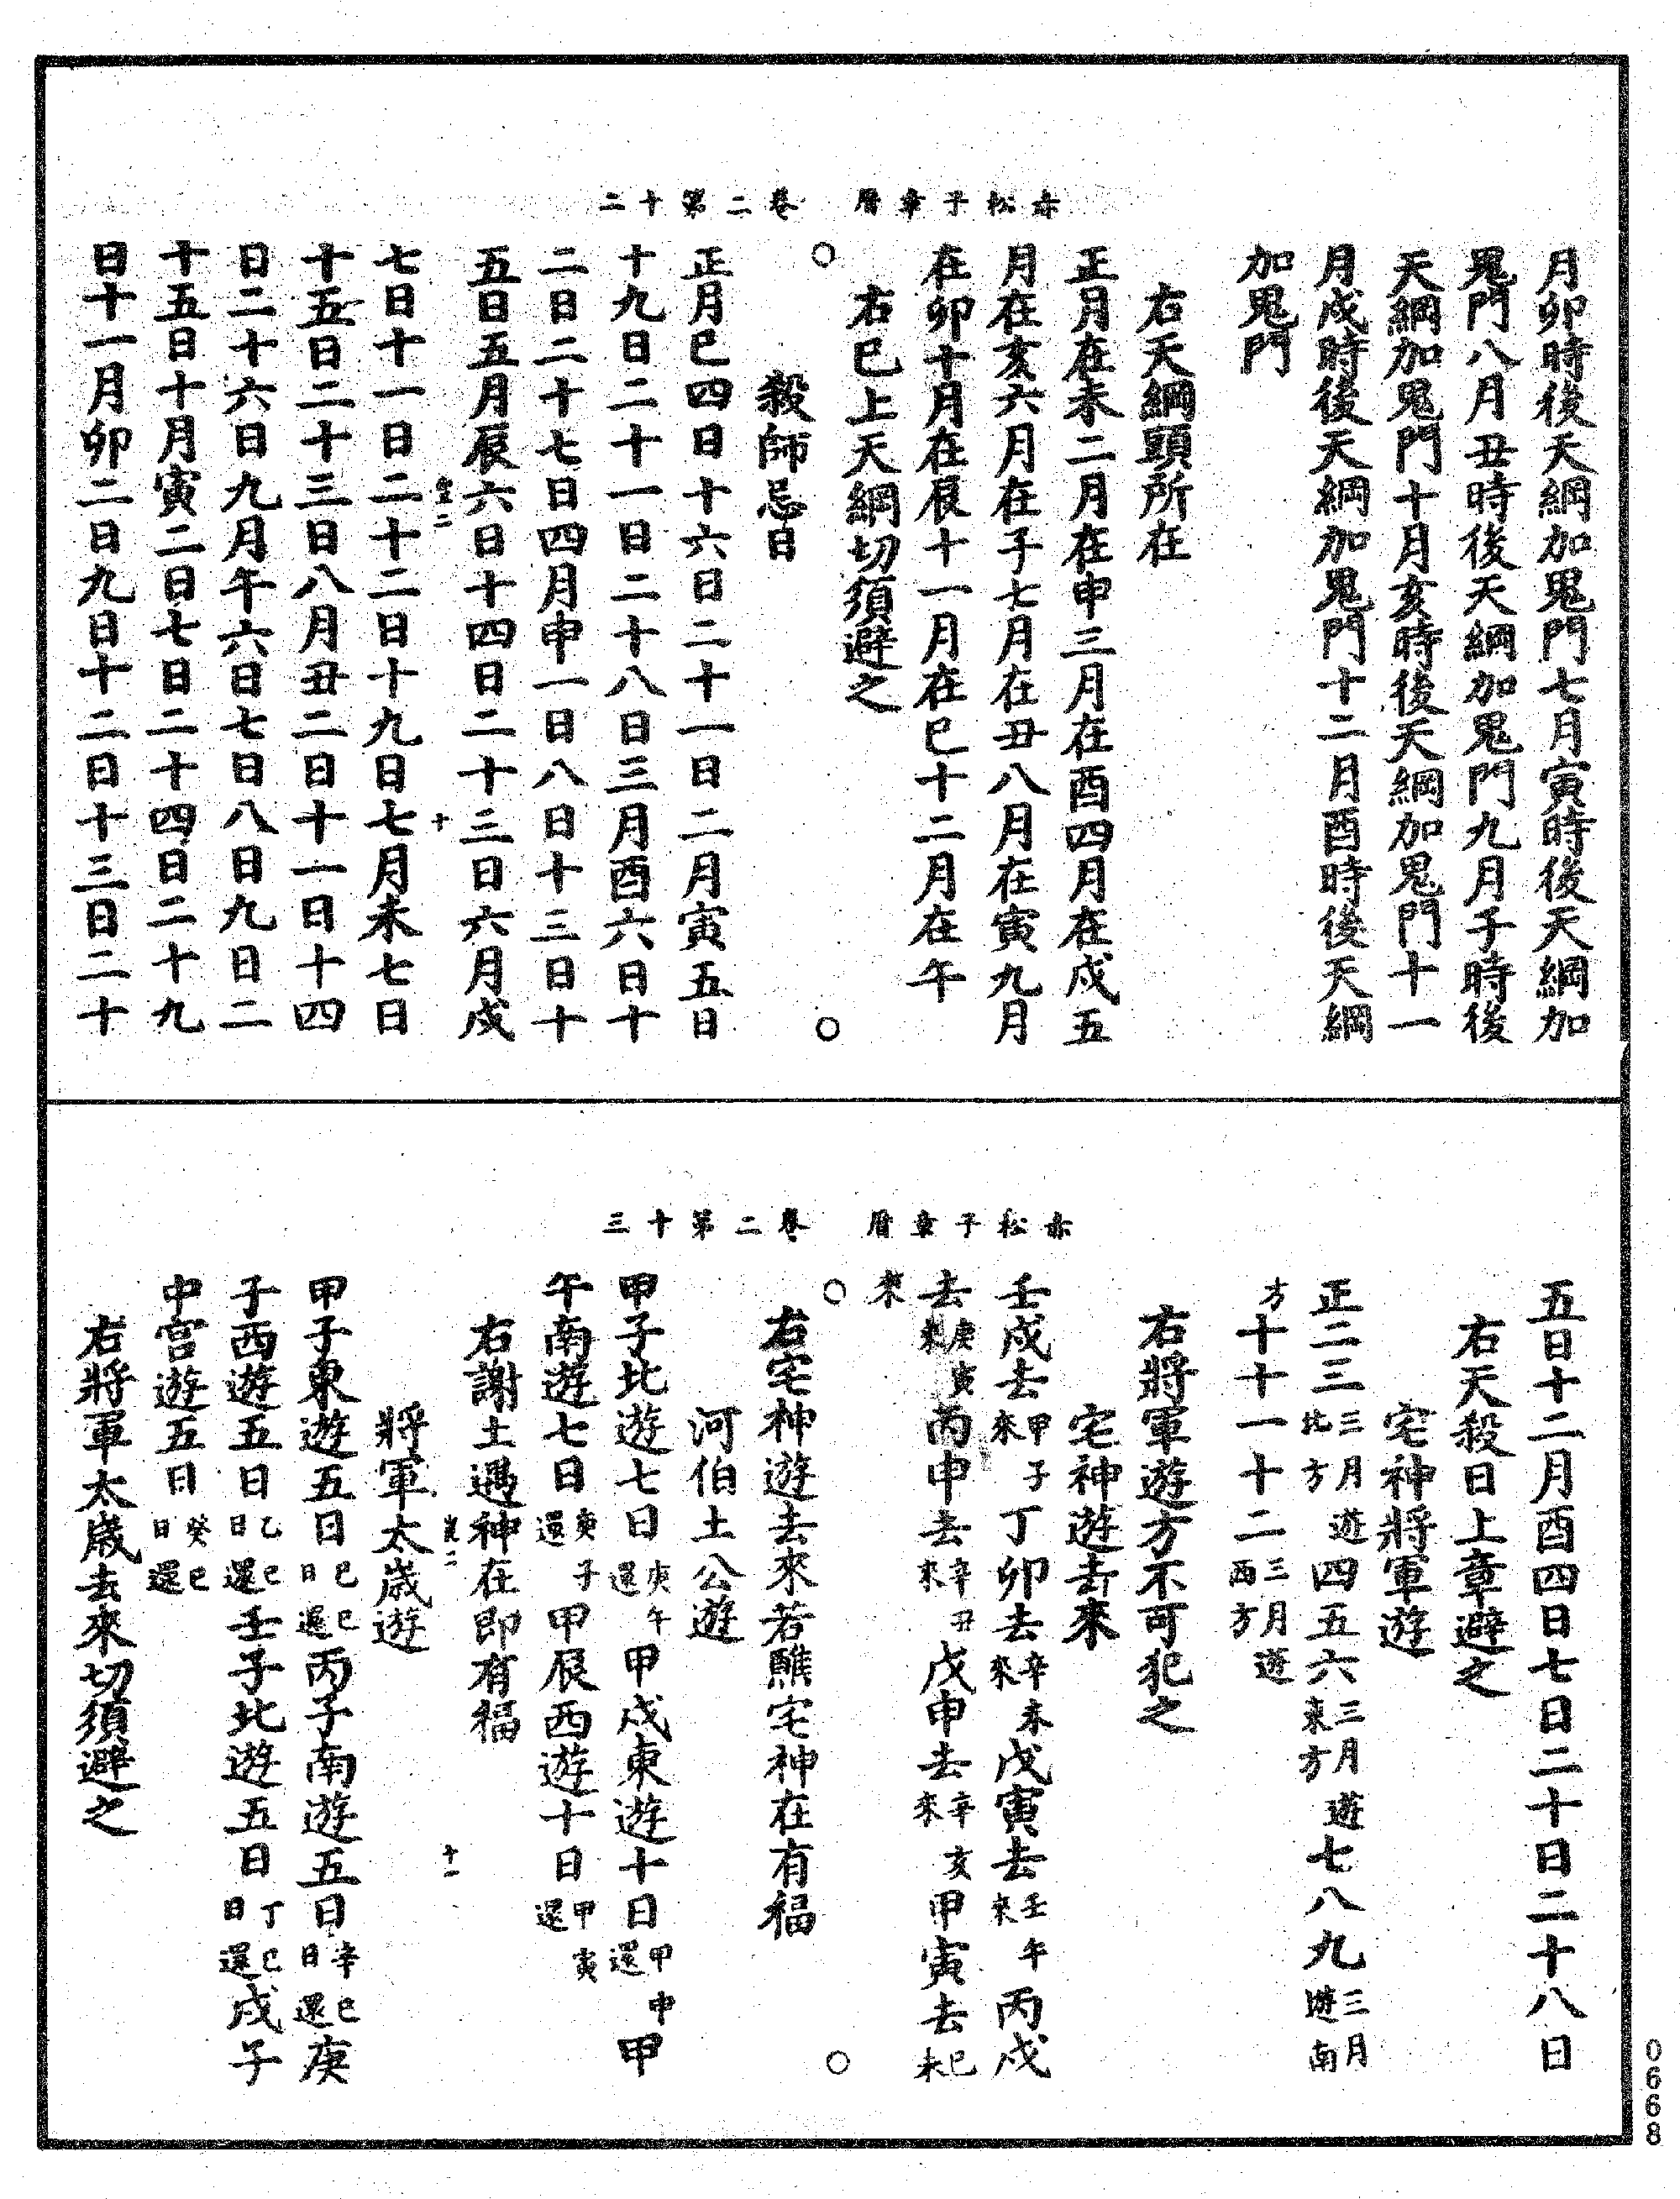 赤松子章曆　卷二第十二
月卯時後天綱加鬼門七月寅時後天綱加
鬼門八月丑時後天綱加鬼門九月子時後
天綱加鬼門十月亥時後天綱加鬼門十一
月戌時後天綱加鬼門十二月酉時後天綱
加鬼門
右天綱頭所在
正月在未二月在申三月在酉四月在戌五
月在亥六月在子七月在丑八月在寅九月
在卯十月在辰十一月在巳十二月在午
右已上天綱切須避之
殺師忌日
正月巳四日十六日二十一日二月寅五日
十九日二十一日二十八日三月酉六日十
二日二十七日四月申一日八日十三日十
五日五月辰六日十四日二十三日六月戌
七日十一日二十二日十九日七月未七日
十五日二十三日八月丑二日十一日十四
日二十六日九月午六日七日八日九日二
十五日十月寅二日七日二十四日二十九
日十一月卯二日九日十二日十三日二十
赤松子章曆　卷二第十三
五日十二月酉四日七日二十日二十八日
右天殺日上章避之
宅神將軍遊
正二三三月遊北方四五六三月遊東方七八九三月遊南
方十十一十二三月遊西方
右將軍遊方不可犯之
宅神遊去來
壬戌去甲子來丁卯去辛未來戊寅去壬午來丙戌
去庚寅來丙申去辛丑來戊申去辛亥來甲寅去巳未
來
右宅神遊去來若醮宅神在有福
河伯土公遊
甲子北遊七日庚午還甲戌東遊十日甲申還甲
午南遊七日庚子還甲辰西遊十日甲寅還
右謝土遇神在即有福
將軍太歲遊
甲子東遊五日己巳日還丙子南遊五日辛巳日還庚
子西遊五日乙巳日還壬子北遊五日丁巳日還戊子
中宮遊五日癸巳日還
右將軍太歲去來切須避之
0668